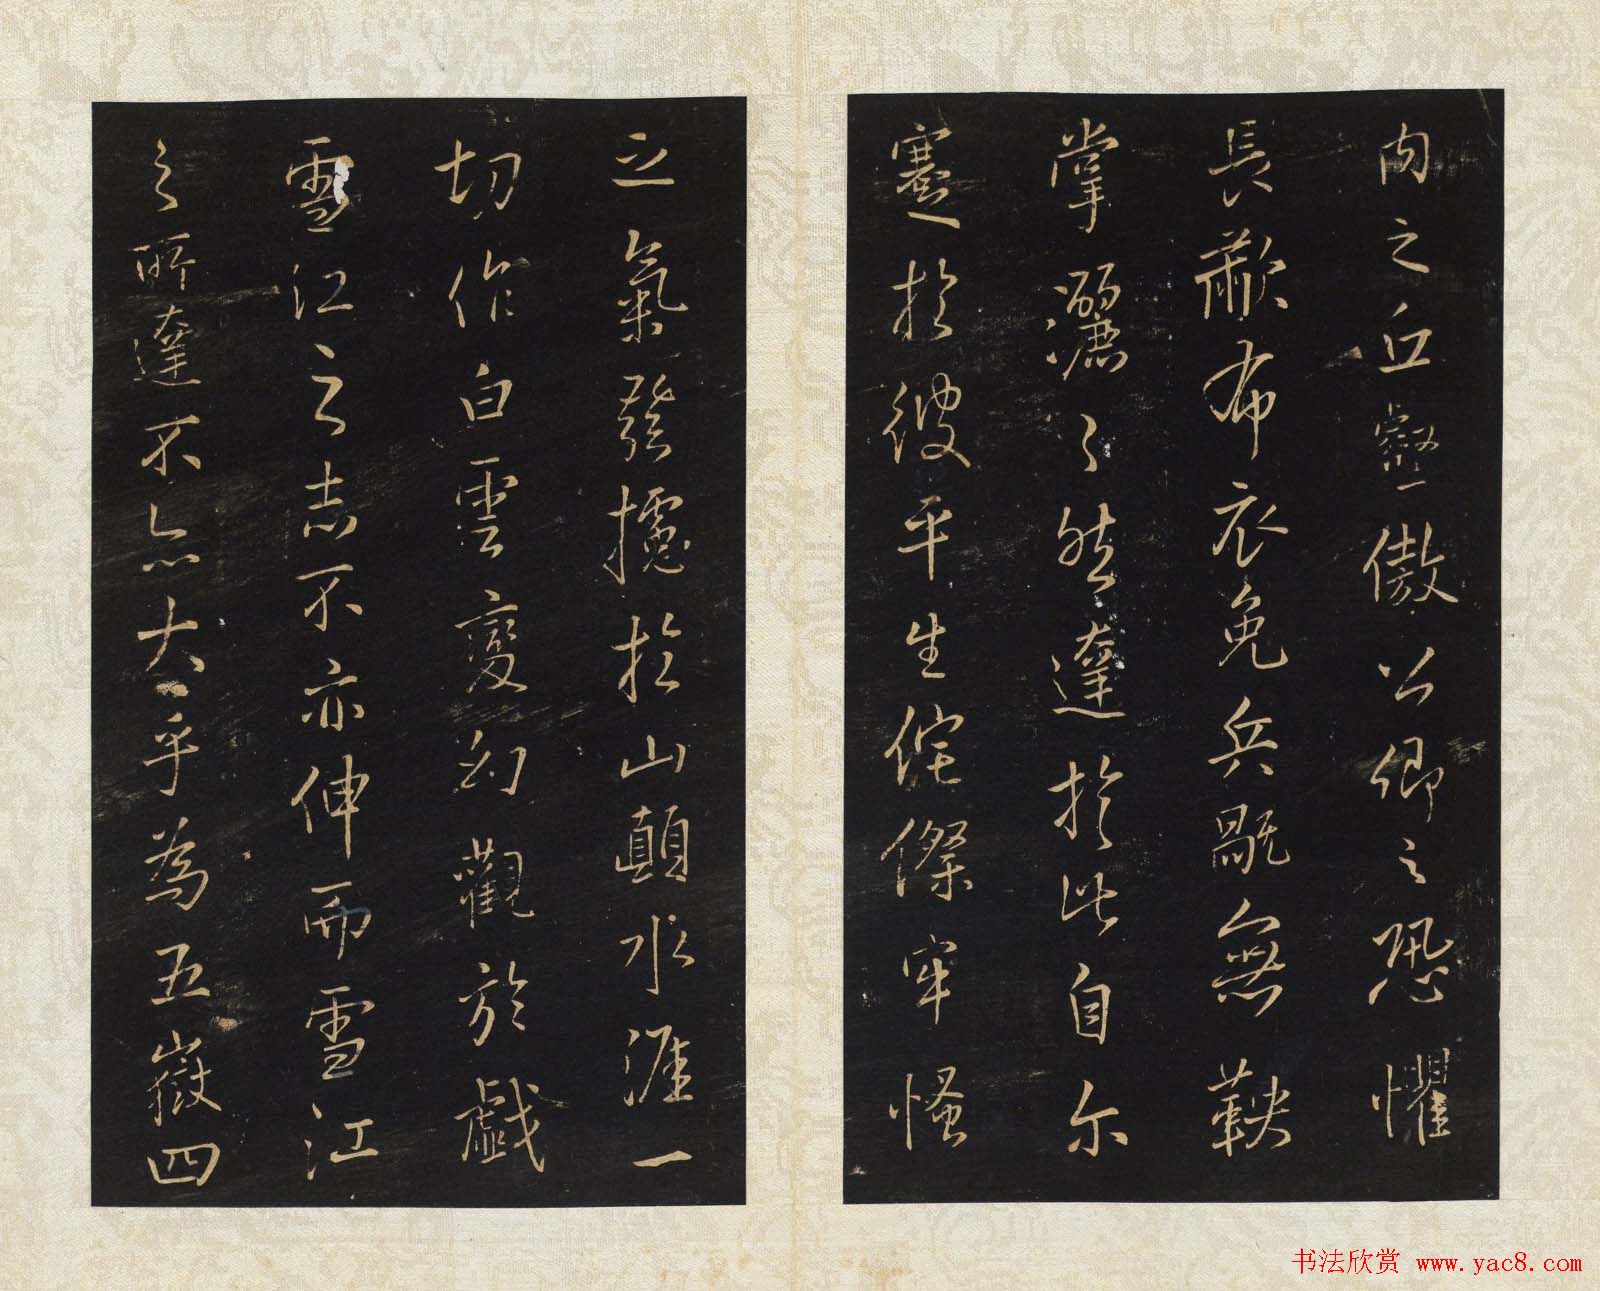 内之丘壑傲公卿之恐懼
長歗布衣免兵無鞅
掌灑〻然達於此自尔
蹇於彼平生侘傺牢慅
之氣發攄於山顛水涯一
切作白雲變幻觀於戲
雪江之志不亦伸而雪江
之所達不亦大乎為五嶽四
书法欣赏 www.yac8.com